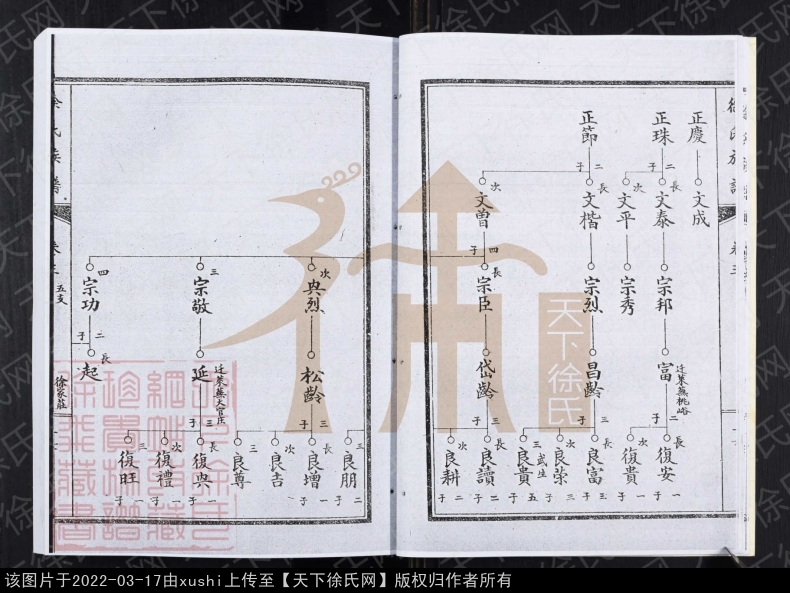 徐氏族譜
卷三
正慶
文成
正珠
二子
長
文泰
宗邦
富
迁萊蕪桃峪
二子
長
復安
一子
次
復貴
一子
文平
宗秀
正節
二子
長
文楷
宗烈
昌齡
三子
長
良富
三子
次
良榮
三子
三
武生
良貴
五子
次
文曽
四子
長
宗臣
岱齡
三子
長
良讀
二子
次
良耕
二子
三
良朋
二子
次
典烈
松齡
三子
長
良增
一子
次
良吉
三
良尊
三
宗敬
延
迁萊蕪大官庄
三子
長
復典
一子
次
復禮
一子
三
復旺
一子
四
宗功
二子
長
起
徐氏族譜
卷三
五支
徐家莊
天下徐氏
该图片于2022-03-17由xushi上传至【天下徐氏网】版权归作者所有